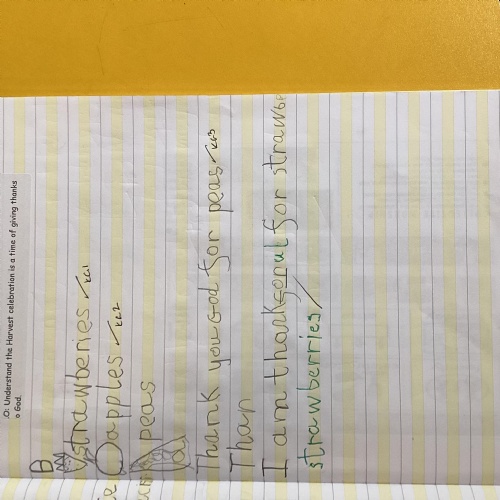 .O: Understand the Harvest celebration is a time of giving thanks
o God.
B
strawberies KC1
apples KC2
peas
Thank you God for peas KC3
Than
I am thankful for strawbe
strawberries